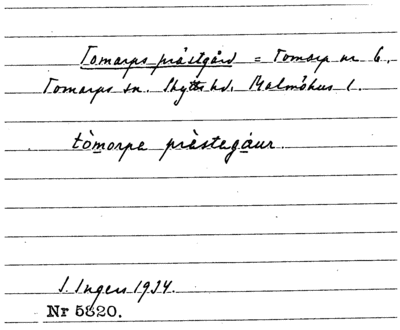 Tomarps prästgård = Tomarp nr 6.
Tomarps sn. Skytts hd. Malmöhus l.
tòmorpa prèstegáur.
I. Ingers 1934.
Nr 5820.